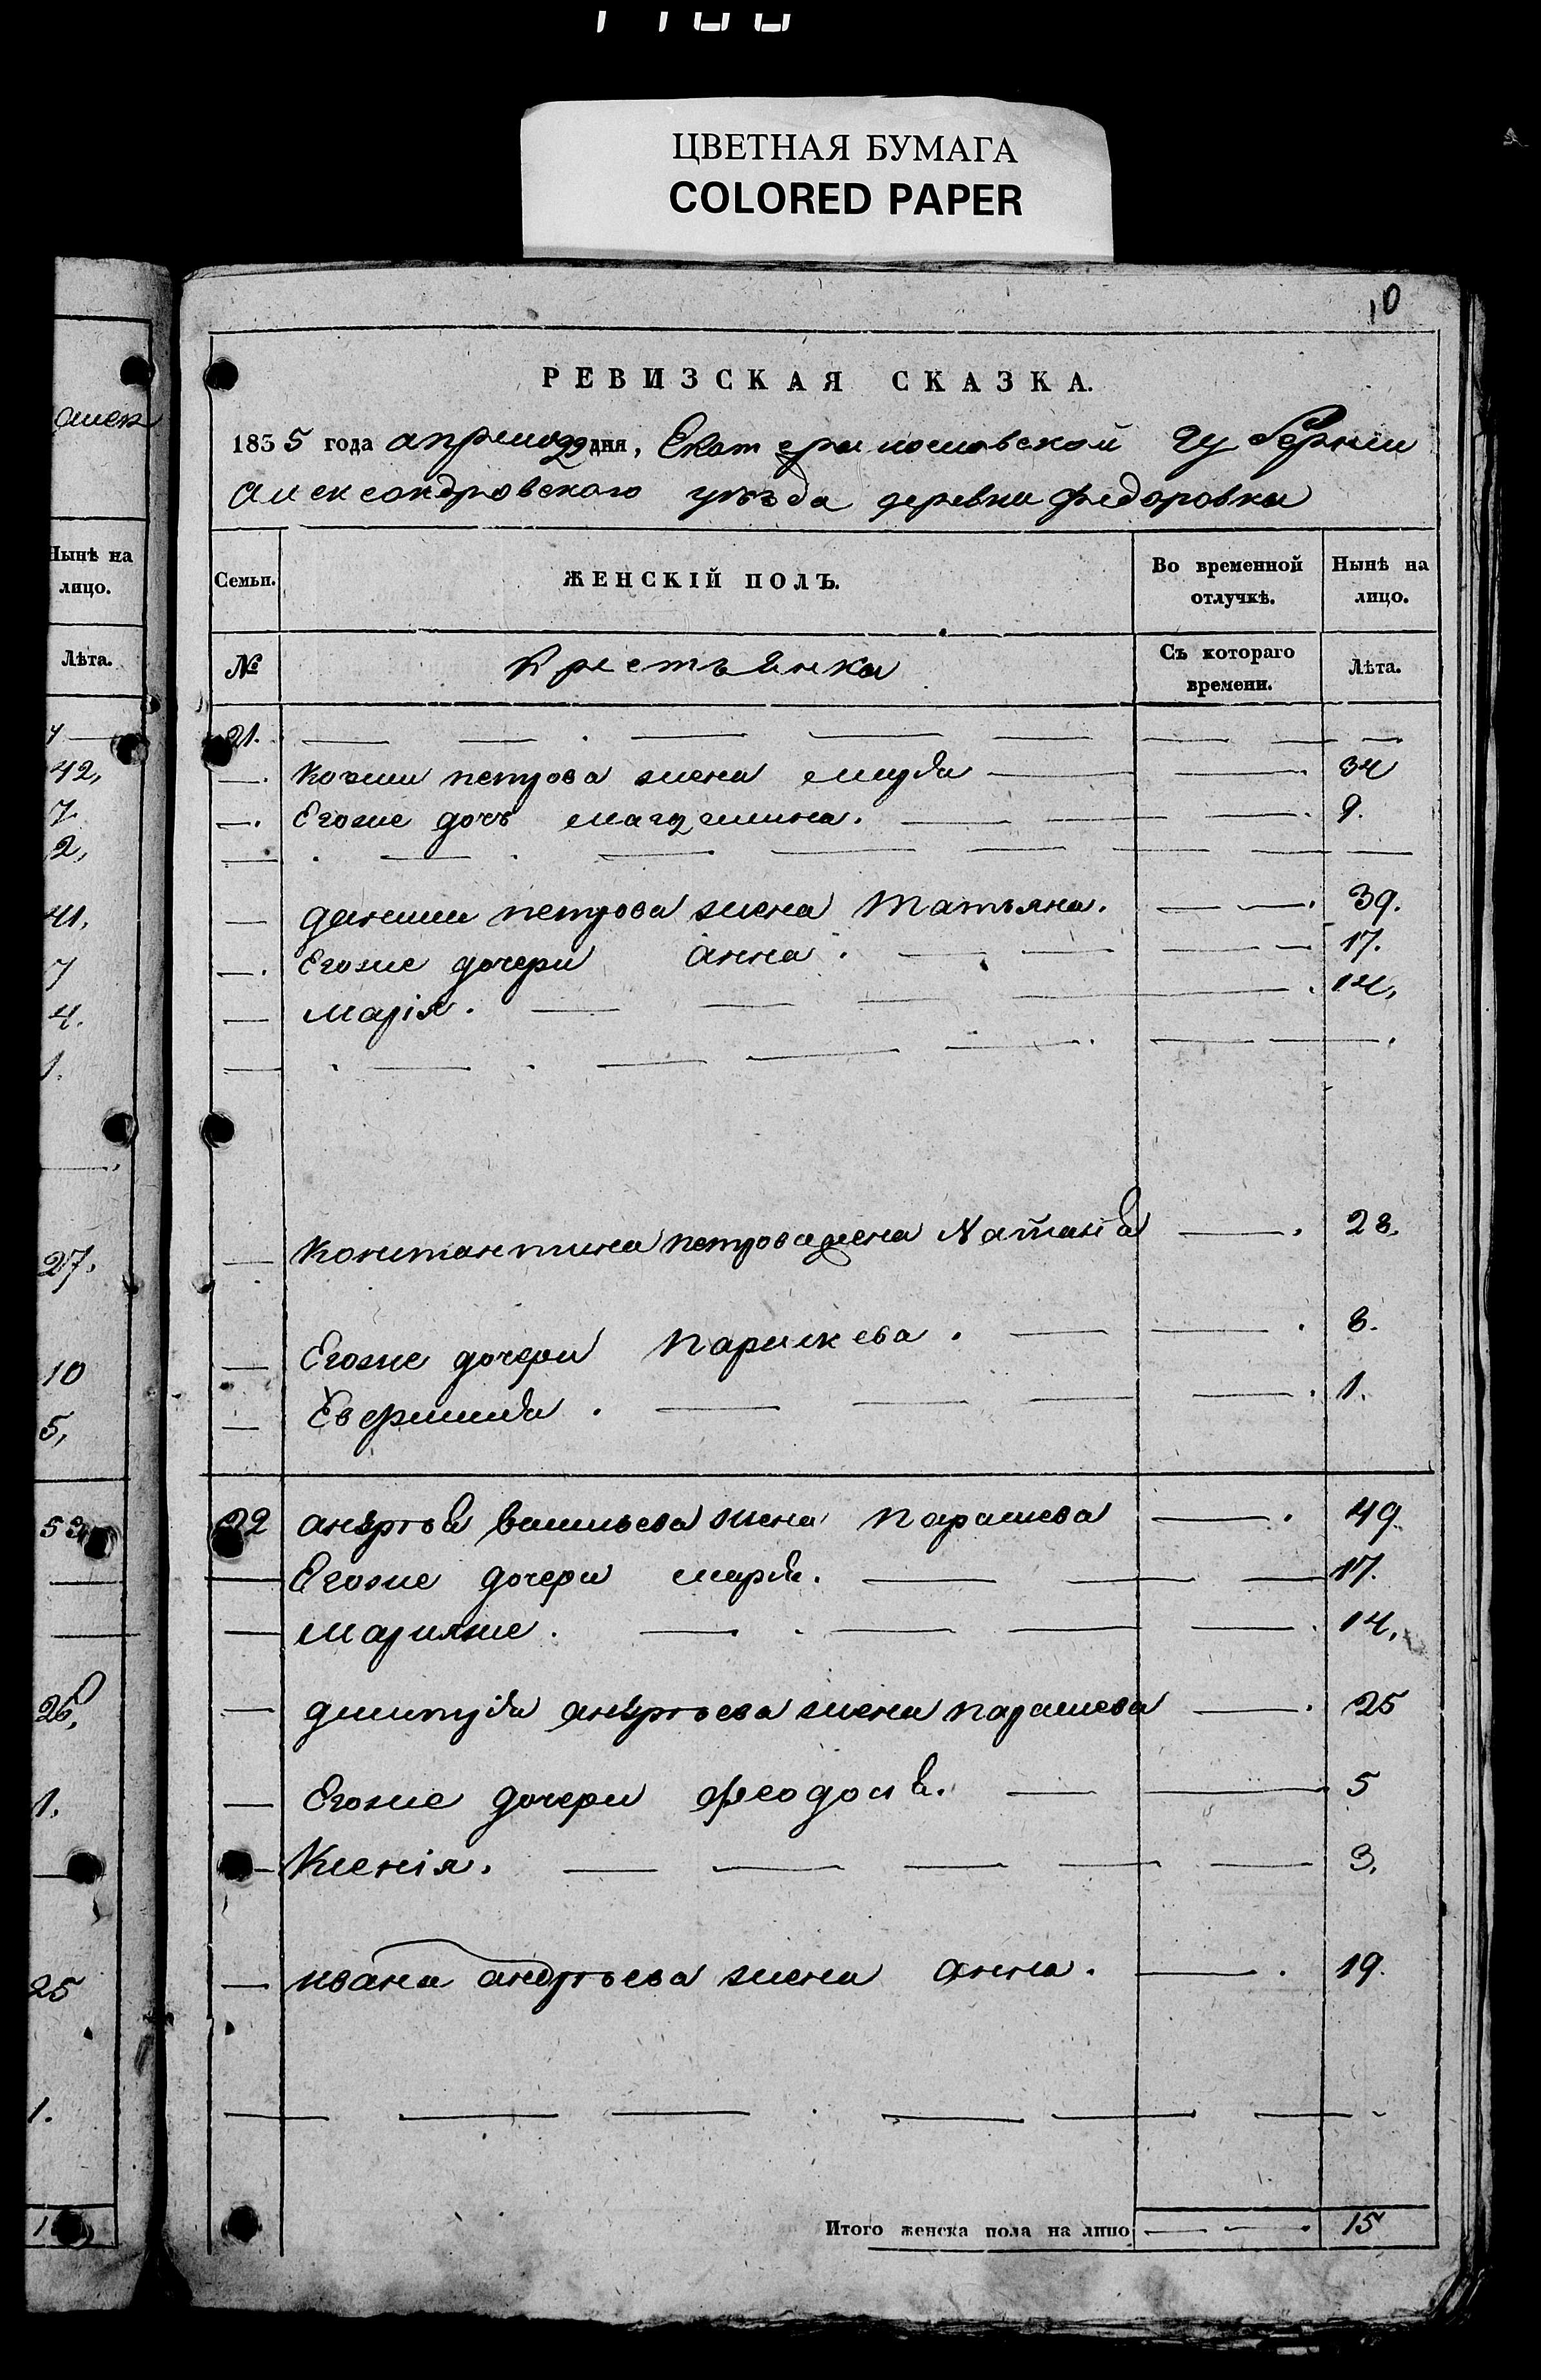 ЦВЕТНАЯ БУМАГА
COLORED PAPER
10
РЕВИЗСКАЯ СКАЗКА.
1835 года апреля 22 дня, Екатеринославской Губернии
александровского уъзда деревни федоровки
Нынѣ на лицо.
Лѣта.
42,
7.
2,
41.
7
4.
1.
27.
10
5,
53
26,
1.
25
1.
Семьи. ЖЕНСКІЙ ПОЛЪ. Во временной отлучкѣ. Нынѣ на лицо.
№ Крестьянка Съ котораго времени. Лѣта.
21.
петрова жена 34
Егоже дочъ 9.
данилы петрова жена татьяна. 39.
Егоже дочери анна. 17.
марія. 14.
константина петрова жена 28.
Егоже дочери параскева. 8.
1.
22 андрѣя васильева жена параскева 49.
Егоже дочери 17.
14.
дмитрія андрѣева жена параскева 25
Егоже дочери феодосія. 5
Ксенія. 3.
ивана андрѣева жена анна. 19.
Итого женска пола на лицо 15